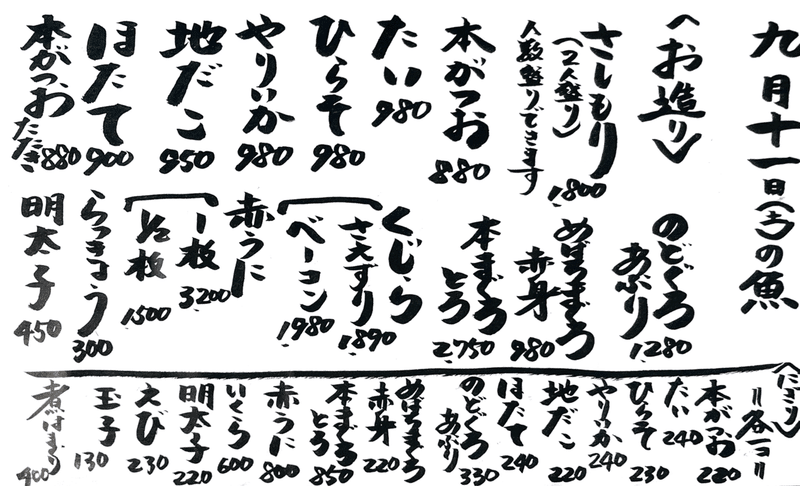 九月十一日(土)の魚
〈お造り〉
さしもり
(2人盛り)
1800
人数盛りできます
本がつお
880
たい
980
ひらそ
980
やりいか
980
地だこ
950
ほたて
900
本がつおたたき
880
のどぐろ
あぶり
1280
めばちまぐろ
赤身
980
本まぐろ
とろ
2750
くじら
さえずり
1890
ベーコン
1980
赤うに
一枚
3200
½枚
1500
らっきょう
300
明太子
450
〈にぎり〉
本がつお
220
たい
240
ひらそ
230
やりいか
240
地だこ
220
ほたて
240
のどぐろ
あぶり
330
めばちまぐろ
赤身
220
本まぐろ
とろ
850
赤うに
800
いくら
600
明太子
220
えび
230
玉子
130
煮はまぐり
400